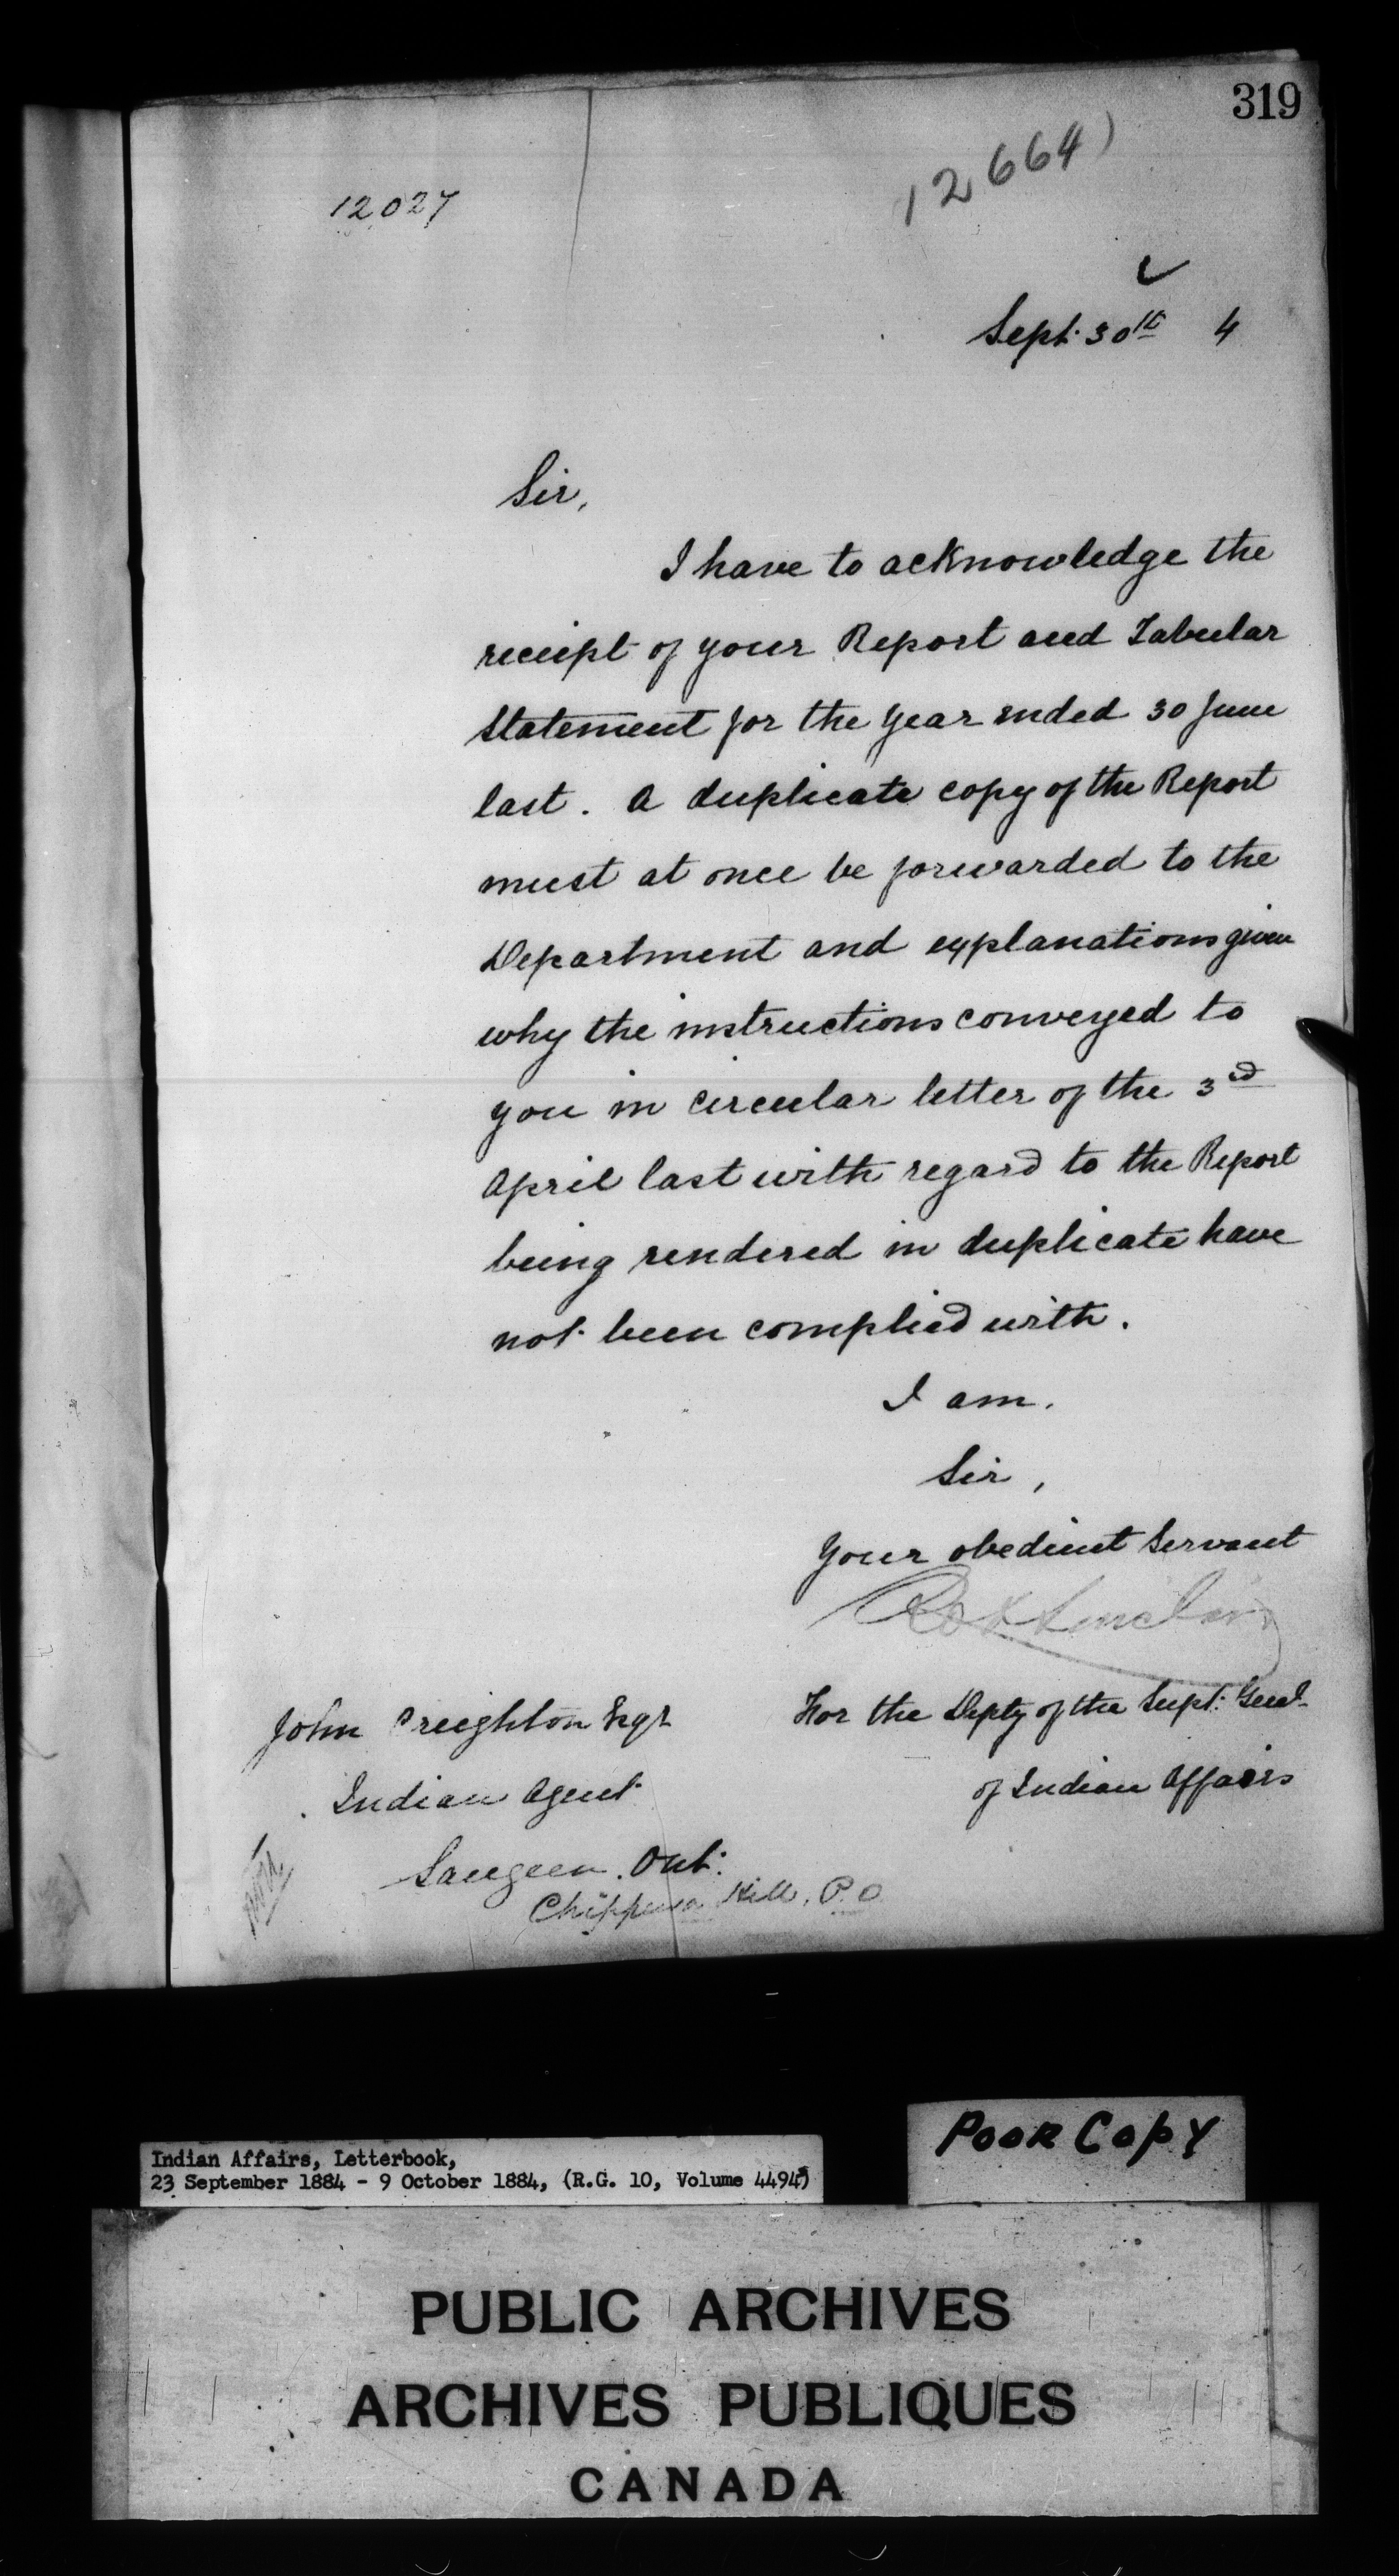 319
12664)
12027
Sept. 30th 4
Sir,
I have to acknowledge the
receipt of your Report and Tabular
Statement for the Year ended 30 June
last. A duplicate copy of the Report
must at once be forwarded to the
Department and explanations given
why the instructions conveyed to
you in circular letter of the 3rd
April last with regard to the Report
being rendered in duplicate have
not been complied with.
I am,
Sir,
Your obedient Servant
Sinclair
For the Depty of the Supt. Genl.
of Indian Affairs
John Creighton Esqr
Indian Agent
Saugeen. Ont.
Chippewa Hill, P.O
Indian Affairs, Letterbook,
23 September 1884 - 9 October 1884, (R.G. 10, Volume 4494)
POOR COPY
PUBLIC ARCHIVES
ARCHIVES PUBLIQUES
CANADA